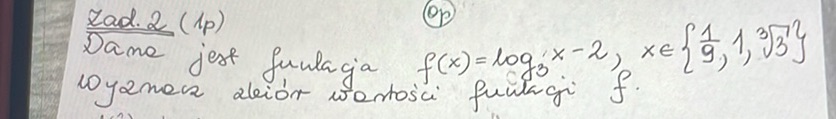 Zad. 2 (1p) 0p
Dana jest funkcja f(x) = log₃ x - 2, x ∈ {1/9, 1, ∛3}
wyznacz zbiór wartości funkcji f.